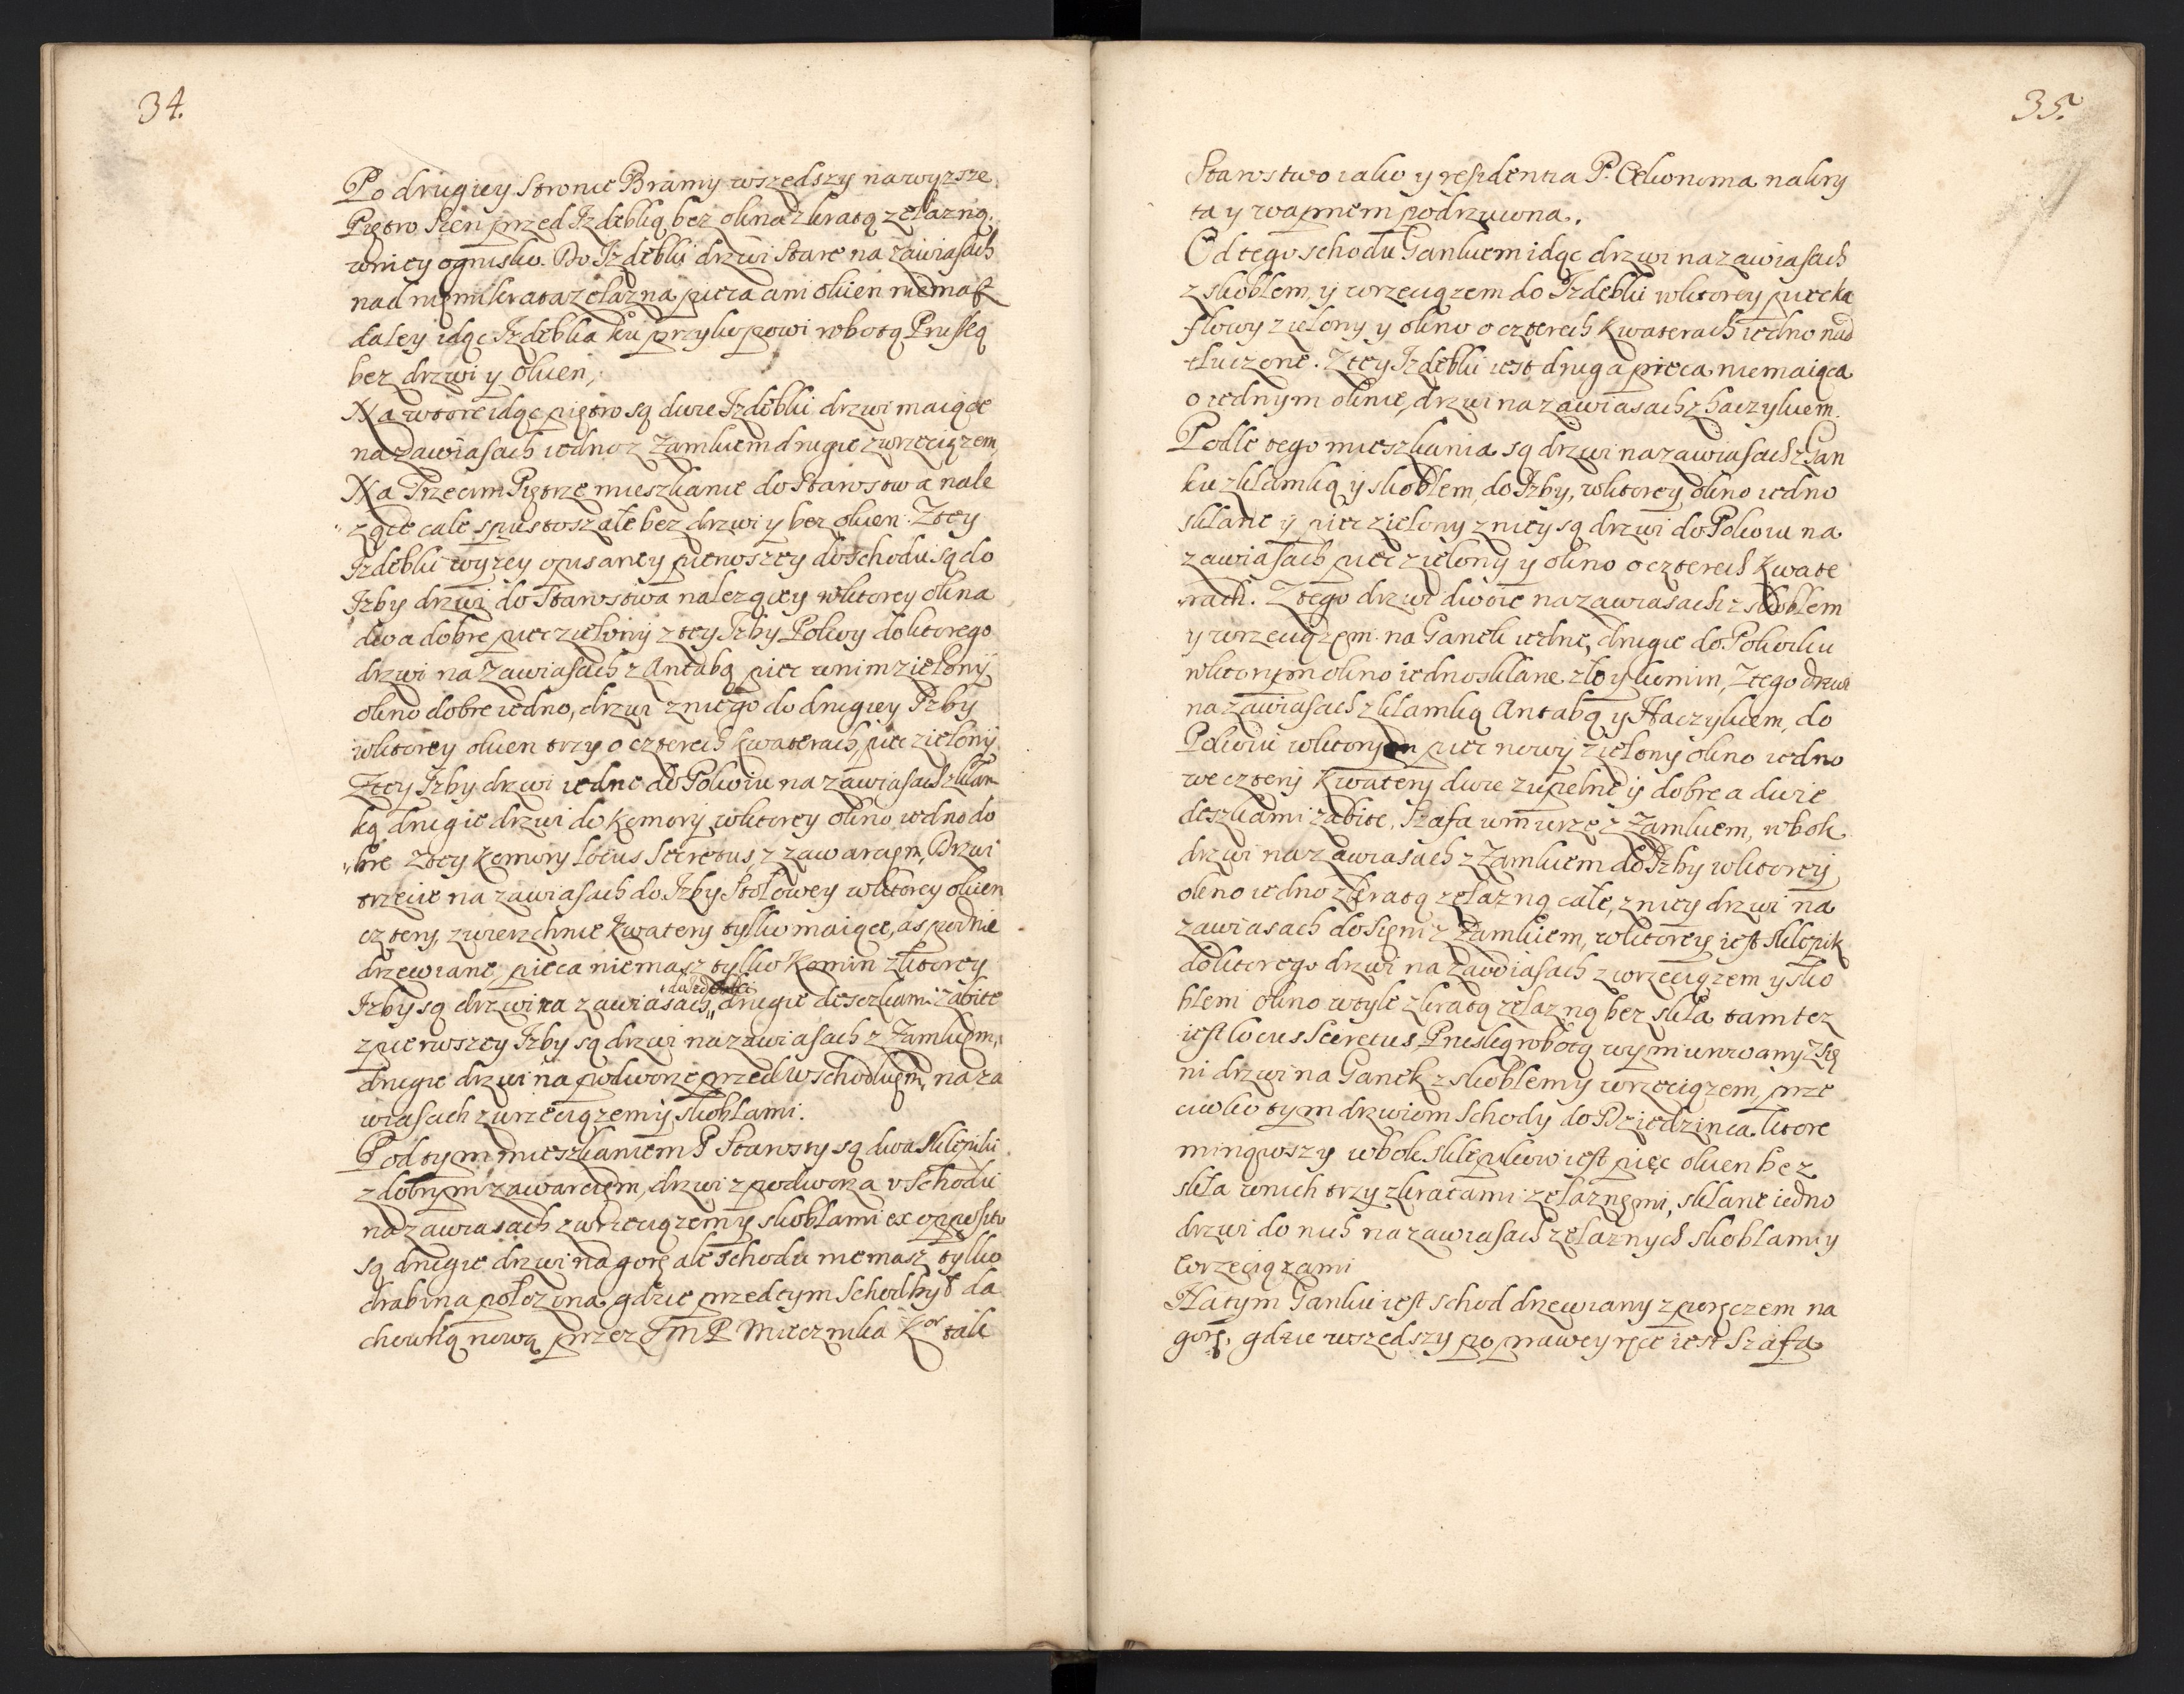 34.
Po drugiey stronie Bramy wszedszy na wyzsze
Piętro Sień przed Izdebką bez okna z kratą zelazną,
w niey ognisko. Do Izdebki drzwi stare na zawiasach
nad niemi krata zelazna pieca ani okien niemasz
daley idąc Izdebka ku przykopowi robotą Pruską
bez drzwi y okien,
Na wtore idąc piętro są dwie Izdebki drzwi maiące
na zawiasach iedno z zamkiem drugie z wrzeciązem,
Na Trzecim Piętrze mieszkanie do Starostwa nale
zące cale spustoszałe bez drzwi y bez okien. Z tey
Izdebki wyzey opisaney pierwszey do schodu są do
Izby drzwi do Starostwa nalezącey w ktorey okna
dwa dobre piec zielony z tey Izby Pokoy do ktorego
drzwi na zawiasach z Antabą piec w nim zielony
okno dobre iedno, drzwi z niego do drugiey Izby
w ktorey okien trzy o czterech kwaterach, piec zielony
Z tey Izby drzwi iedne do Pokoiu na zawiasach z klam
ką drugie drzwi do Komory w ktorey okno iedno do
bre Z tey Komory Locus Secretus z zawarciem, Drzwi
trzecie na zawiasach do Izby Stołowey w ktorey okien
cztery, zwierzchnie kwatery tylko maiące, a spodnie
drzewiane, pieca niemasz tylko Komin z ktorey
Izby są drzwi na zawiasach drugie deszkami zabite
z pierwszey Izby są drzwi na zawiasach z Zamkiem,
drugie drzwi na podworze przed wschodkiem, na za
wiasach z wrzeciązem y skoblami.
Pod tym mieszkaniem P Starosty są dwa sklepiki
z dobrym zawarciem, drzwi z podworza v schodu
na zawiasach z wrzeciązem y skoblami ex opposito
są drugie drzwi na gorę ale schodu niemasz tylko
drabina połozona, gdzie przed tym schod był da
chowką nową przez JMP Miecznika Kor tak
35.
Starostwo iako y residentia P. Œkonoma nakry
ta y wapnem podrzucona.
Od tego schodu Gankiem idąc drzwi na zawiasach
z skoblem, y wrzeciązem do Izdebki w ktorey piec ka
flowy zielony y okno o czterech kwaterach iedno nad
tłuczone. Z tey Izdebki iest druga pieca niemaiąca
o iednym oknie, drzwi na zawiasach z haczykiem.
Podle tego mieszkania są drzwi na zawiasach z Gan
ku z klamką y skoblem, do Izby, w ktorey okno iedno
sklane y piec zielony z niey są drzwi do Pokoiu na
zawiasach piec zielony y okno o czterech kwate
rach. Z tego drzwi dwoie na zawiasach z skoblem
y wrzeciązem na Ganek iedne, drugie do Pokoiku
w ktorym okno iedno sklane złe y komin, Z tego drzwi
na zawiasach z klamką Antabą y Haczykiem, do
Pokoiu w ktorym piec nowy zielony okno iedno
we cztery kwatery dwie zupełne y dobre a dwie
deszkami zabite, Szafa w murze z Zamkiem, w bok
drzwi na zawiasach z Zamkiem do Izby w ktorey
okno iedno z kratą zelazną całe, z niey drzwi na
zawiasach do Sieni z Zamkiem, w ktorey iest sklepik
do ktorego drzwi na zawiasach z wrzeciązem y sko
blem okno w tyle z kratą zelazną bez skła tamtez
iest locus Secretus Pruską robotą wymurowany z Się
ni drzwi na Ganek z skoblem y wrzeciązem, prze
ciwko tym drzwiom Schody do Dziedzinca ktore
minąwszy w bok sklepikow iest pięć okien bez
skła w nich trzy z kratami zelaznemi, sklane iedno
drzwi do nich na zawiasach zelaznych skoblami y
wrzeciązami
Na tym Ganku iest schod drzewiany z poręczem na
gorę, gdzie wszedszy po prawey ręce iest Szafa